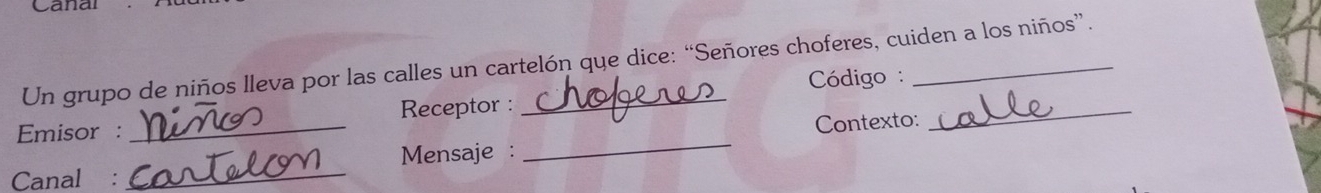 Canal :
Un grupo de niños lleva por las calles un cartelón que dice: “Señores choferes, cuiden a los niños”.
Emisor : niños Receptor : choferes Código :
Canal : cartelon Mensaje : Contexto: calle